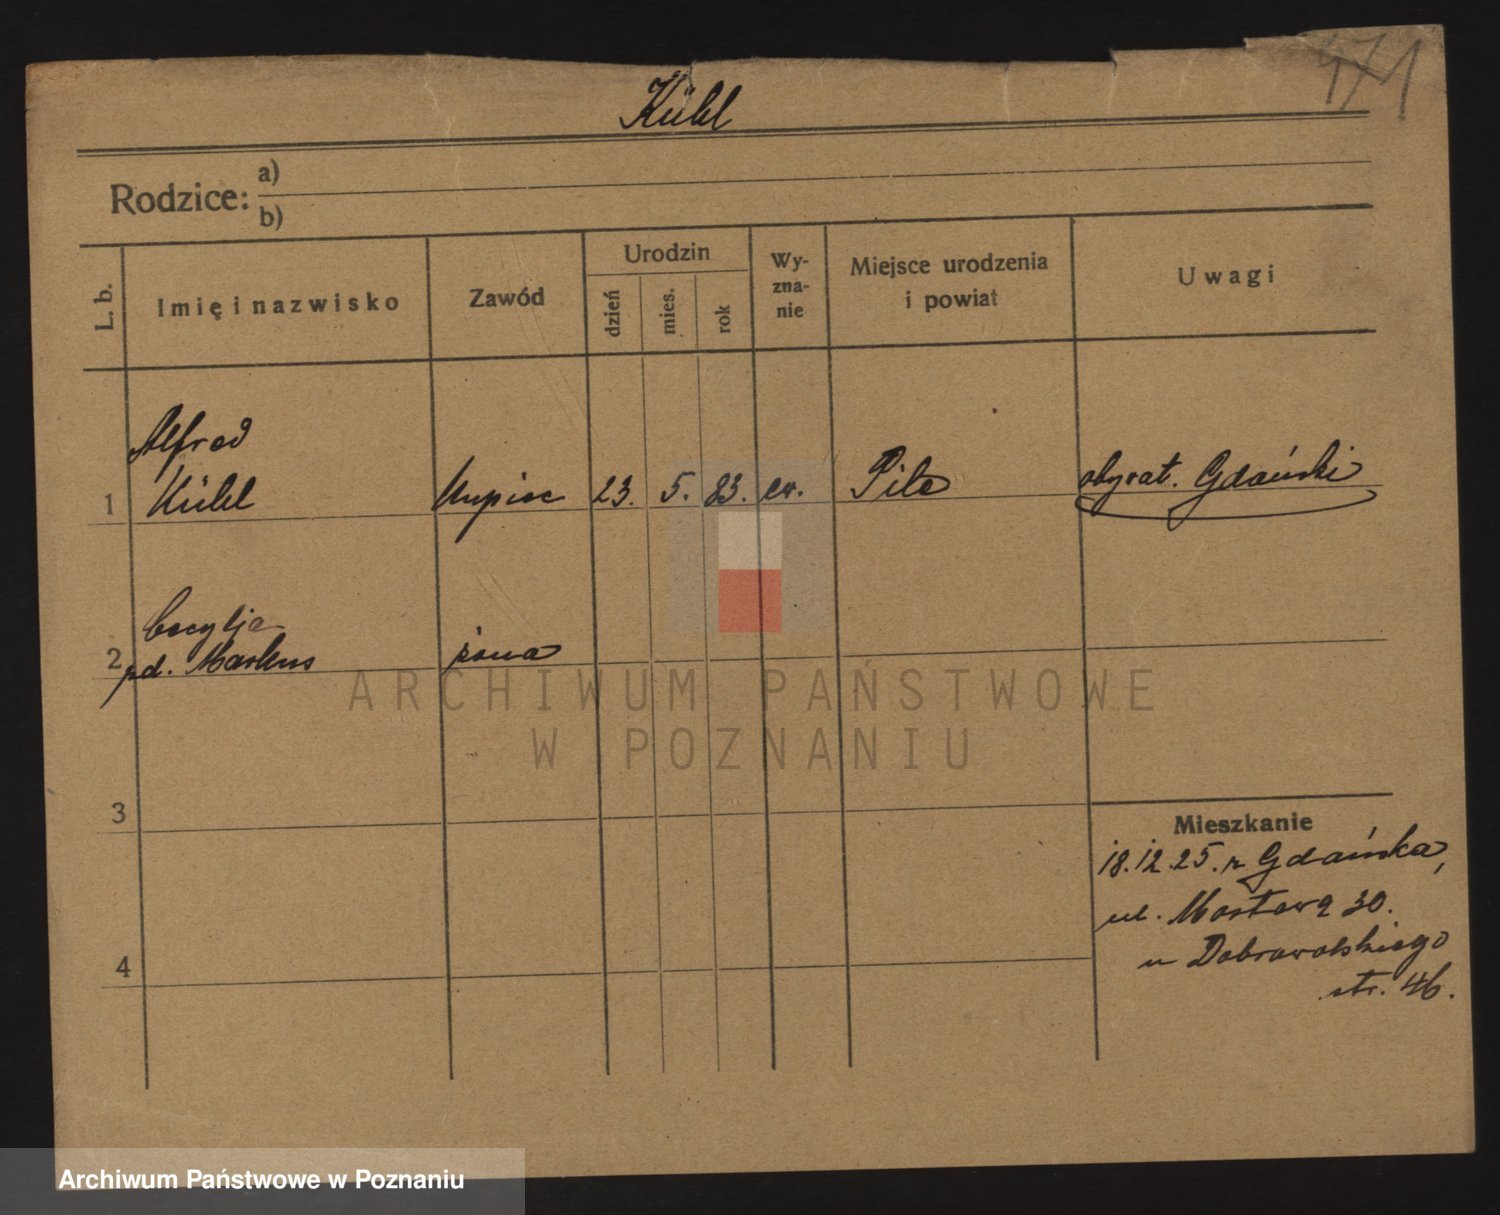 471
Kühl
Rodzice: a)
b)
L. b. Imię i nazwisko Zawód Urodzin dzień mies. rok Wy-zna-nie Miejsce urodzenia i powiat Uwagi
Alfred
1 Kühl Kupiec 23. 5. 83. ew. Piła obywat. Gdański
Cecylja
2 żona
ARCHIWUM PAŃSTWOWE
W POZNANIU
3
Mieszkanie
18.12.25. z Gdańska,
ul. Mostowa 30.
u Dobrowolskiego
4
str. 46.
Archiwum Państwowe w Poznaniu